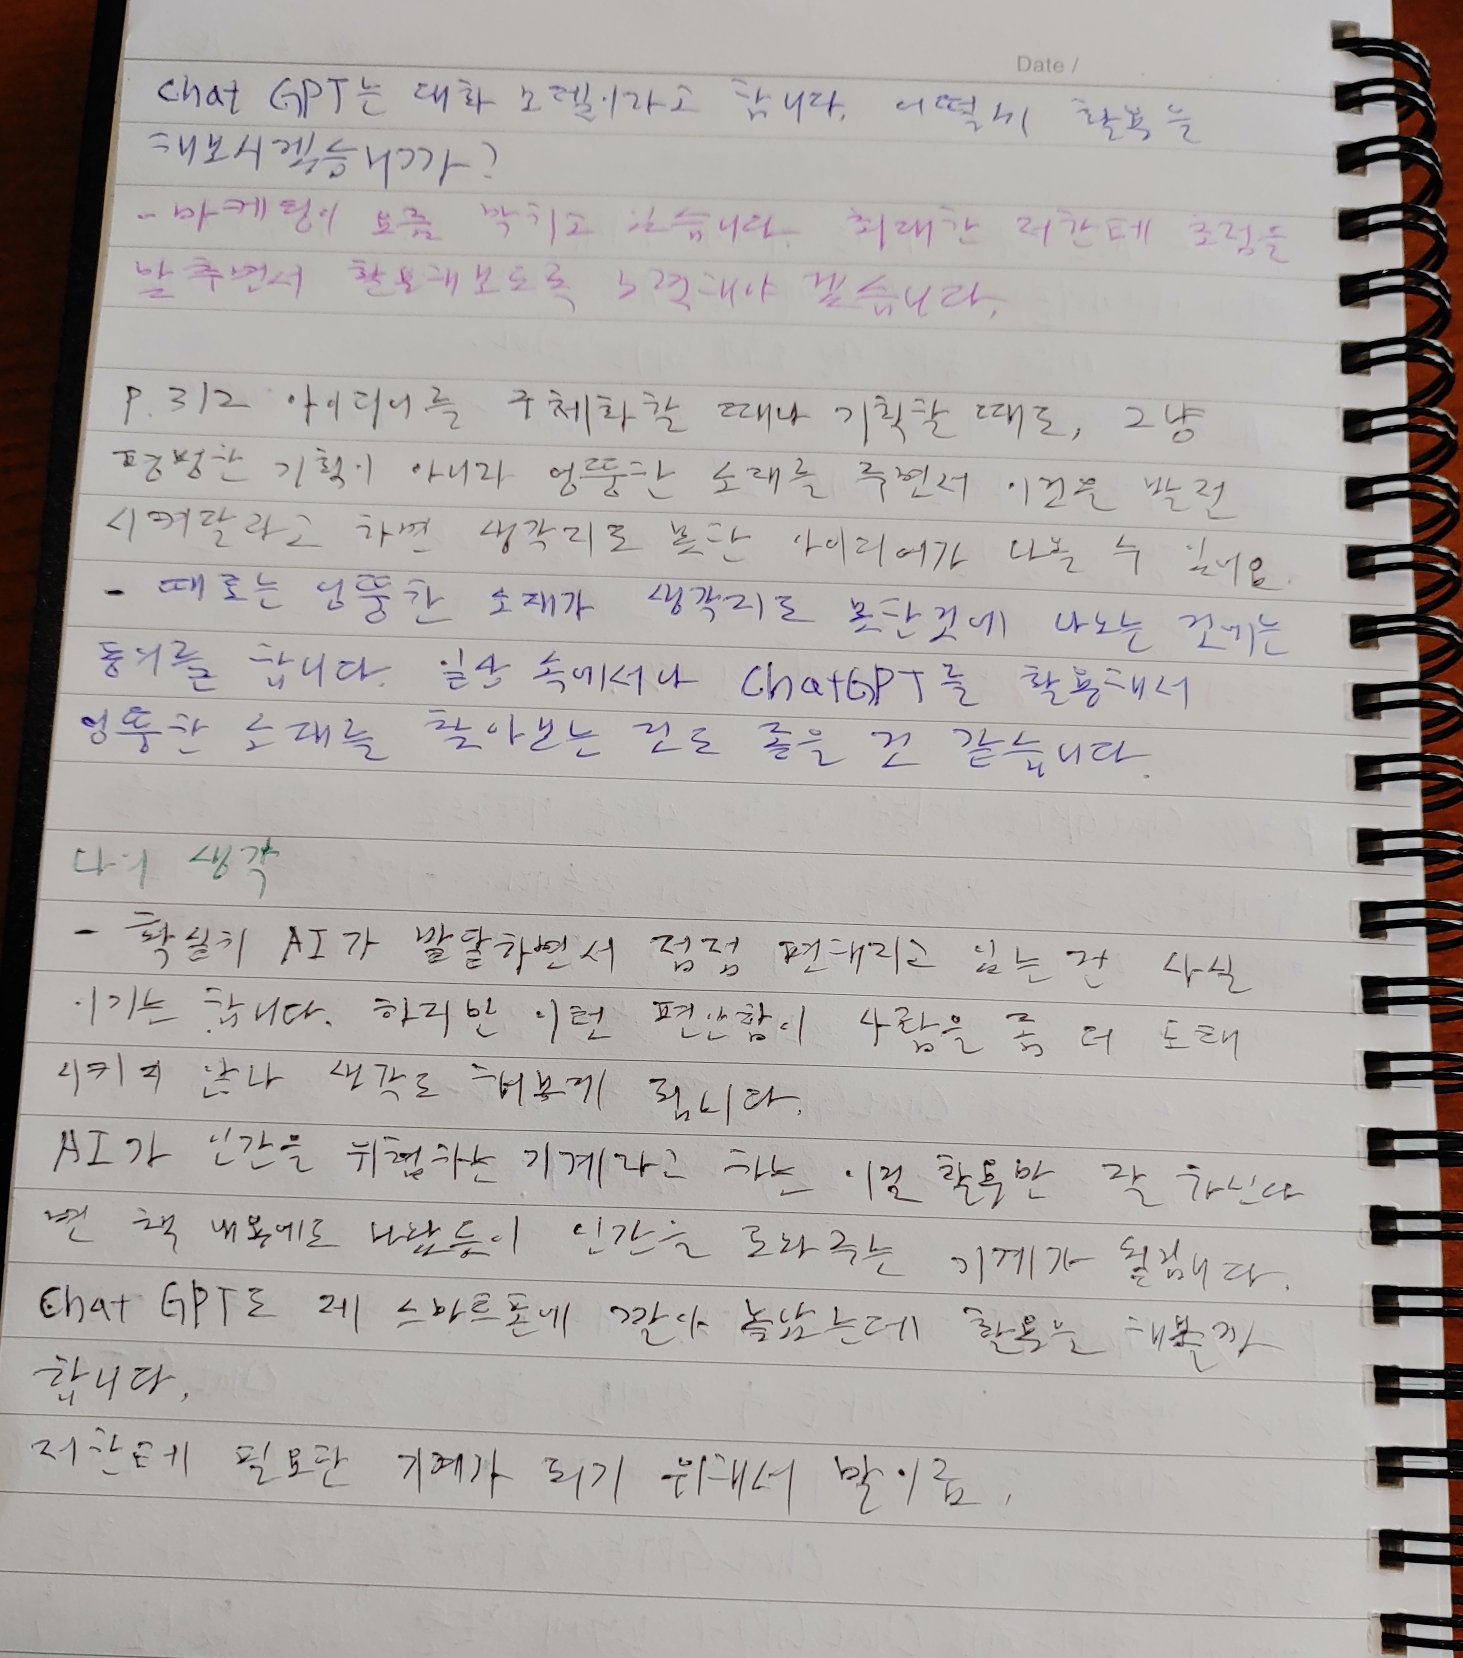 Date /
Chat GPT는 대화 모델이라고 합니다. 어떻게 활용을
해보시겠습니까?
- 마케팅이 요즘 막히고 있습니다. 최대한 저한테 초점을
맞추면서 활용해보도록 노력해야 겠습니다.
P.312 아이디어를 구체화할 때나 기획할 때도, 그냥
평범한 기획이 아니라 엉뚱한 소재를 주면서 이것을 발전
시켜달라고 하면 생각지도 못한 아이디어가 나올 수 있어요.
- 때로는 엉뚱한 소재가 생각지도 못한것에 나오는 것에는
동의를 합니다. 일상 속에서나 ChatGPT를 활용해서
엉뚱한 소재를 찾아보는 것도 좋을 것 같습니다.
나의 생각
- 확실히 AI가 발달하면서 점점 편해지고 있는건 사실
이기는 합니다. 하지만 이런 편안함이 사람을 좀 더 도태
시키지 않나 생각도 해보게 됩니다.
AI가 인간을 위협하는 기계라고 하는 이걸 활용만 잘 하신다
면 책 내용에도 나왔듯이 인간을 도와주는 기계가 될겁니다.
Chat GPT도 제 스마트폰에 깔아 놓았는데 활용을 해볼까
합니다.
저한테 필요한 기계가 되기 위해서 말이죠.